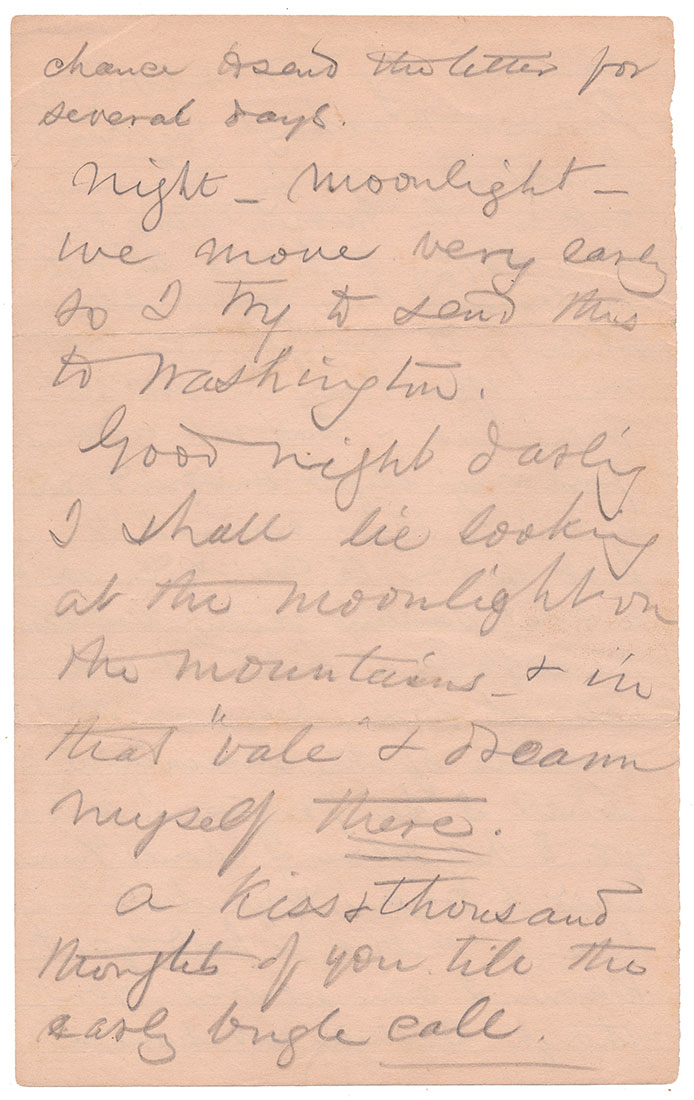 chance to send the letter for
several days.
Night – Moonlight –
we move very early
so I try to send this
to Washington.
Good night darlig
I shall lie looking
at the moonlight on
the mountains – & in
that "vale" & dream
myself there.
a Kiss & thousand
thoughts of you till the
early bugle call.